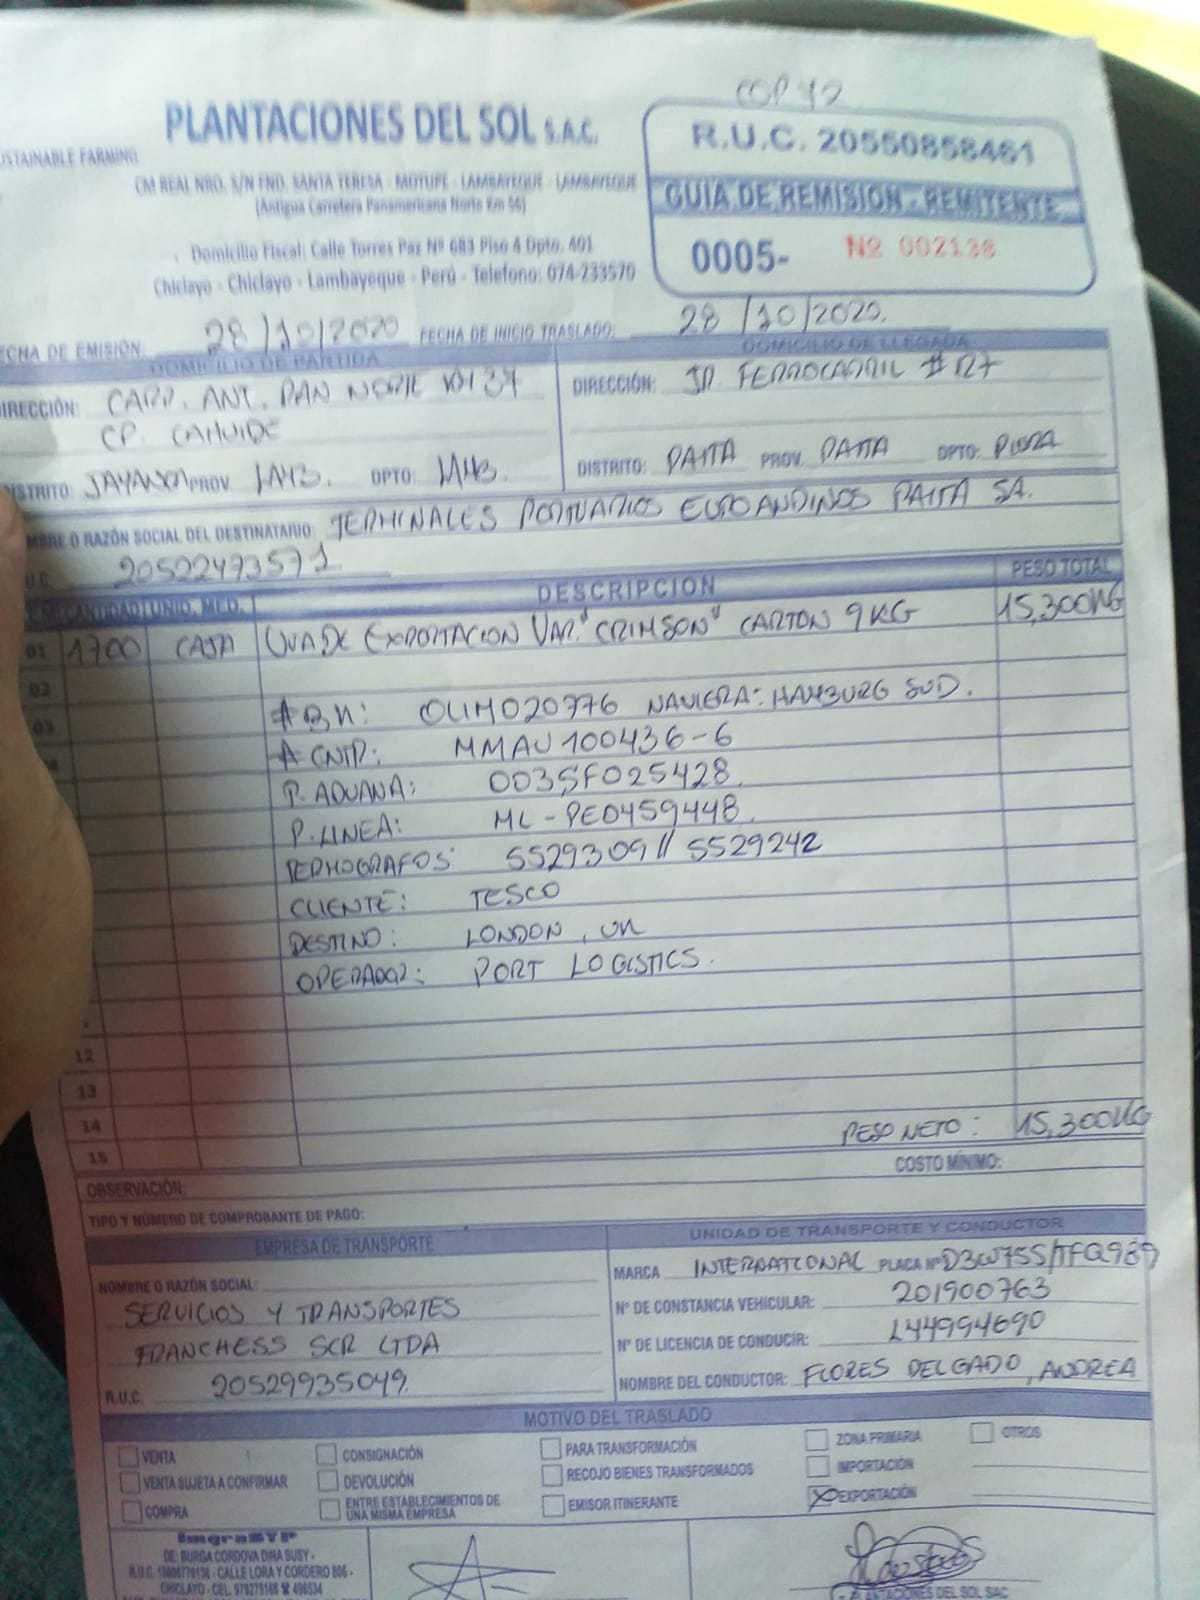 COP 42
PLANTACIONES DEL SOL S.A.C.
USTAINABLE FARMING
CM REAL NRO. S/N FND. SANTA TERESA - MOTUPE - LAMBAYEQUE - LAMBAYEQUE
(Antigua Carretera Panamericana Norte Km 56)
Domicilio Fiscal: Calle Torres Paz Nº 683 Piso 4 Dpto. 401
Chiclayo - Chiclayo - Lambayeque - Perú - Telefono: 074-233570
R.U.C. 20550858461
GUIA DE REMISION - REMITENTE
0005- Nº 002138
ECHA DE EMISIÓN: 28/10/2020 FECHA DE INICIO TRASLADO: 28/10/2020.
DOMICILIO DE PARTIDA DOMICILIO DE LLEGADA
DIRECCIÓN: CARR. ANT. PAN NORTE DIRECCIÓN: JR. FERROCARRIL # 127
CP. CAHUIDE
ISTRITO: JAYANCA PROV. LAMB. DPTO: LAMB. DISTRITO: PAITA PROV. PAITA DPTO: PIURA
MBRE O RAZÓN SOCIAL DEL DESTINATARIO: TERMINALES PORTUARIOS EUROANDINOS PAITA SA.
U.C. 20522473571
CANTIDAD UNID. MED. DESCRIPCION PESO TOTAL
01 1700 CAJA UVA DE EXPORTACION VAR. "CRIMSON" CARTON 9KG 15,300KG
02
03 # BK: OLIM020776 NAVIERA: HAMBURG SUD.
# CNTR: MMAU 100436-6
P. ADUANA: 003SF025428.
P. LINEA: ML-PE0459448.
TERMOGRAFOS: 5529309 // 5529242
CLIENTE: TESCO
DESTINO: LONDON, UK
OPERADOR: PORT LOGISTICS.
12
13
14 PESO NETO: 15,300KG
15
COSTO MÍNIMO:
OBSERVACIÓN:
TIPO Y NÚMERO DE COMPROBANTE DE PAGO:
EMPRESA DE TRANSPORTE UNIDAD DE TRANSPORTE Y CONDUCTOR
NOMBRE O RAZÓN SOCIAL: MARCA INTERNATIONAL PLACA Nº D3W755/TFQ989
SERVICIOS Y TRANSPORTES Nº DE CONSTANCIA VEHICULAR: 201900763
FRANCHESS SCR LTDA Nº DE LICENCIA DE CONDUCIR: L44994690
R.U.C. 20529935049. NOMBRE DEL CONDUCTOR: FLORES DELGADO, ANDREA
MOTIVO DEL TRASLADO
VENTA CONSIGNACIÓN PARA TRANSFORMACIÓN ZONA PRIMARIA OTROS
VENTA SUJETA A CONFIRMAR DEVOLUCIÓN RECOJO BIENES TRANSFORMADOS IMPORTACIÓN
COMPRA ENTRE ESTABLECIMIENTOS DE UNA MISMA EMPRESA EMISOR ITINERANTE X EXPORTACIÓN
ImgraSYP
DE: BURGA CORDOVA DINA SUSY -
CALLE LORA Y CORDERO 806 -
CHICLAYO - CEL. 979275168 ☎ 496534
PLANTACIONES DEL SOL SAC